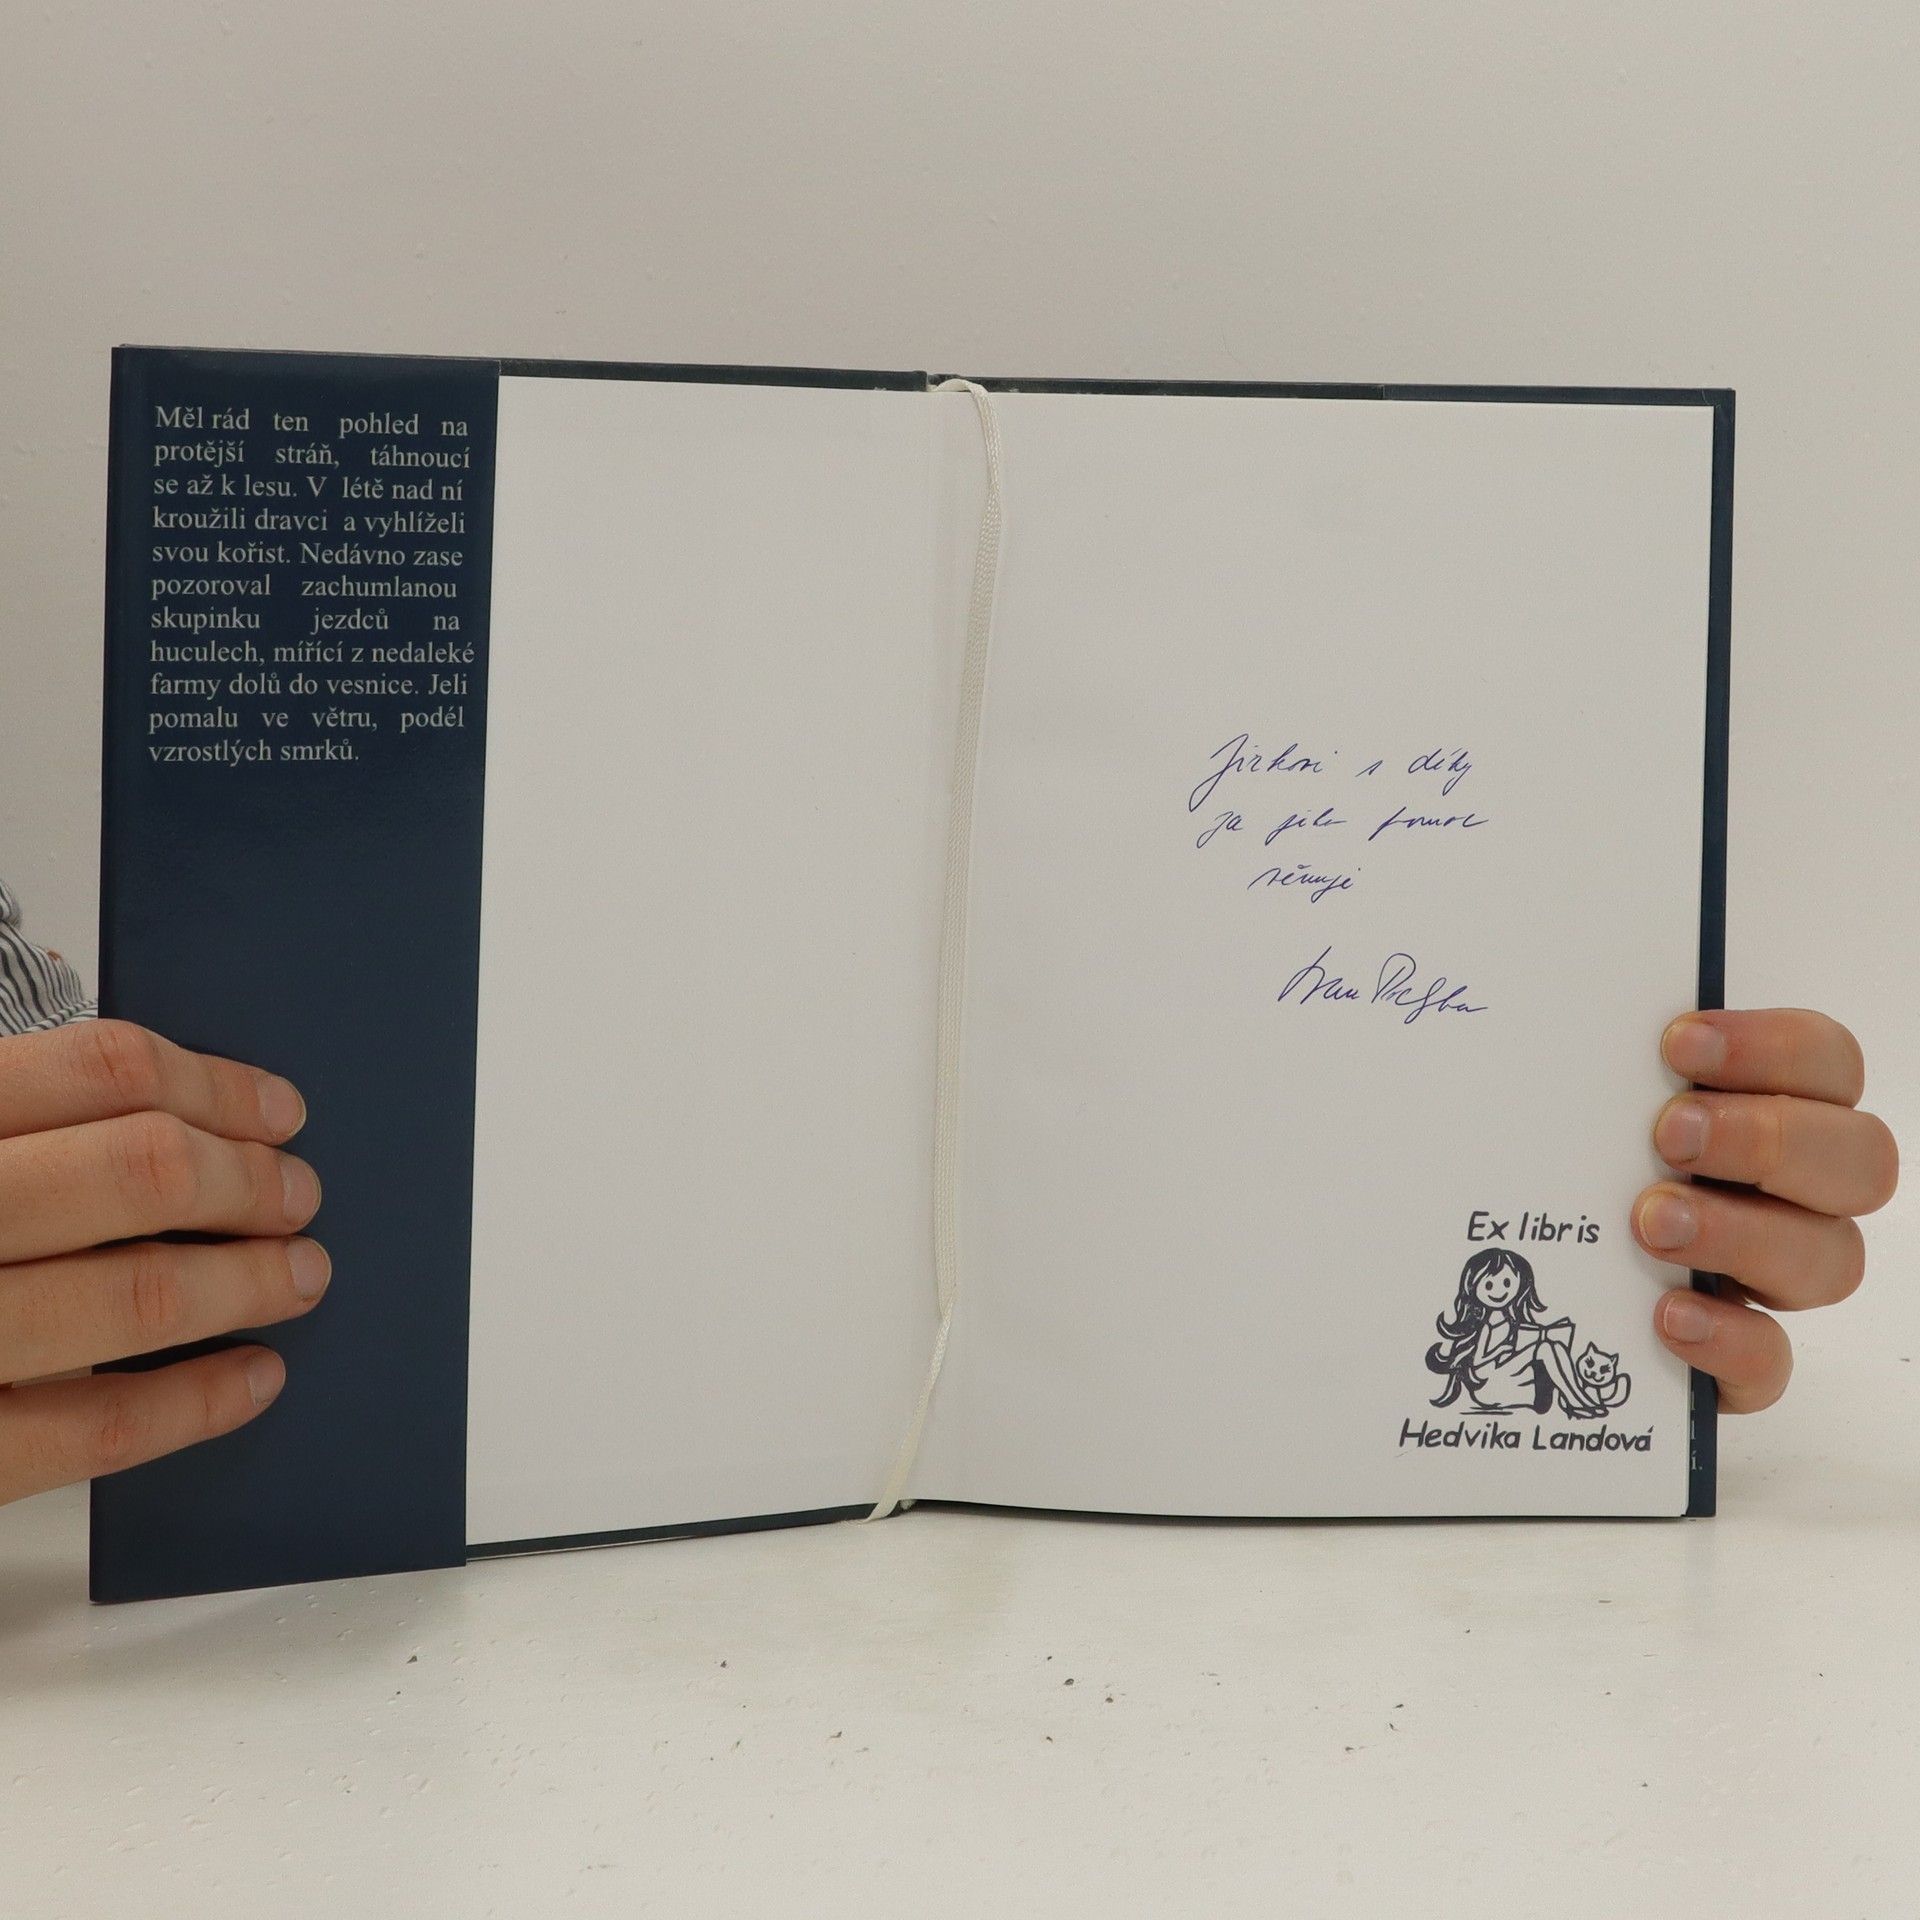 Měl rád ten pohled na
protější stráň, táhnoucí
se až k lesu. V létě nad ní
kroužili dravci a vyhlíželi
svou kořist. Nedávno zase
pozoroval zachumlanou
skupinku jezdců na
huculech, mířící z nedaleké
farmy dolů do vesnice. Jeli
pomalu ve větru, podél
vzrostlých smrků.
Jirkovi s díky
za jeho pomoc
věnuje
Ex libris
Hedvika Landová